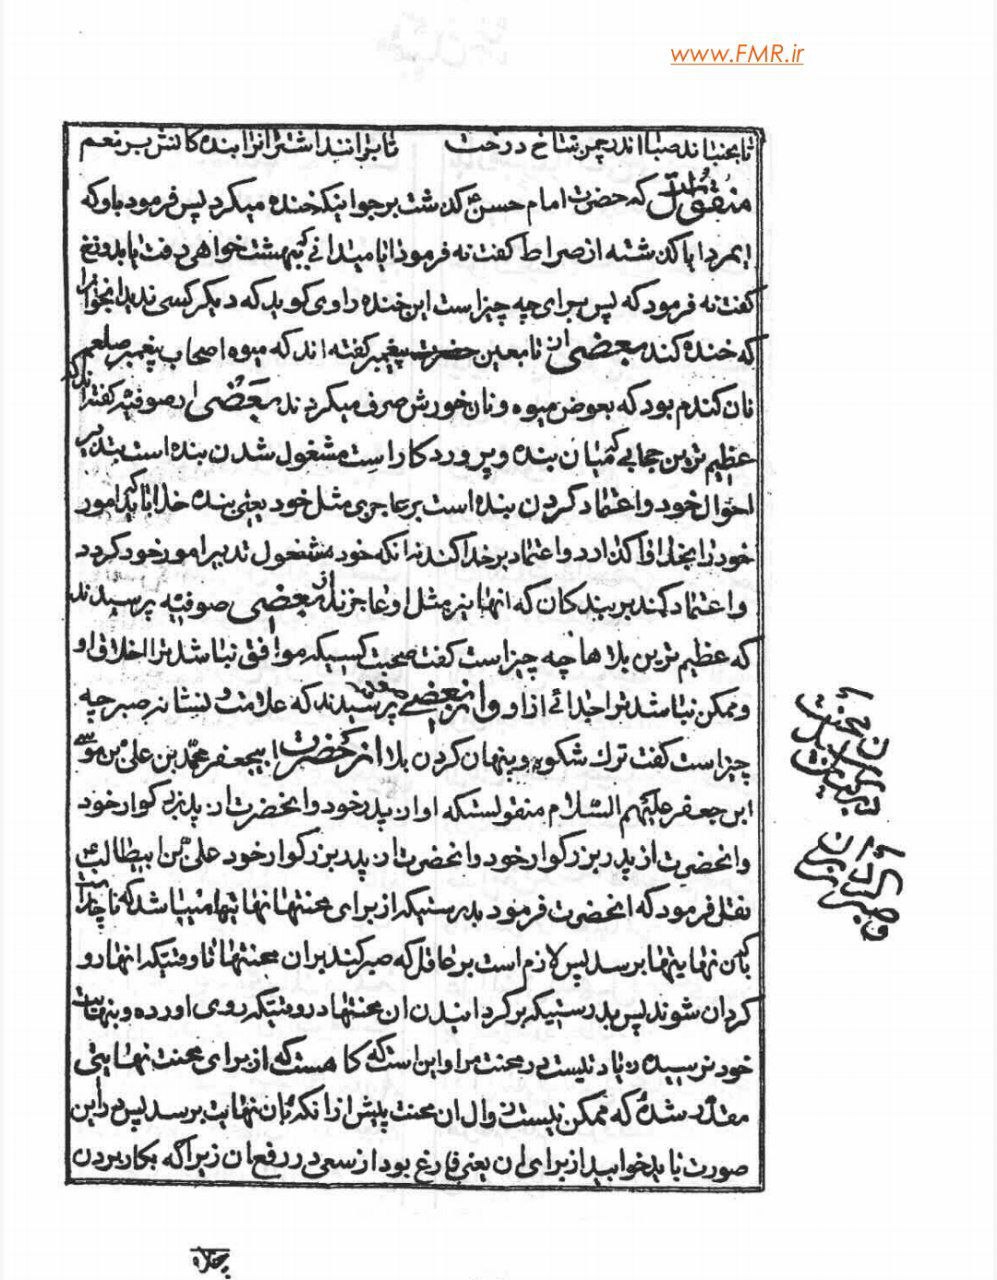 www.FMR.ir
تا بجنباند صبا اندر چمن شاخ درخت تا براند اشتر انرا بنده کانش بر نعم
منقول که حضرت امام حسن ع گذشت بر جوانیکه خنده میکرد پس فرمود باو که
ایمرد ایا گذشته از صراط گفت نه فرمود ایا میدانی که ببهشت خواهی رفت یا بدوزخ
گفت نه فرمود که پس برای چه چیز است این خنده راوی گوید که دیگر کسی ندید انجوانرا
که خنده کند بعضی از تابعین حضرت پیغمبر گفته اند که میوه اصحاب پیغمبر صلعم
نان گندم بود که بعوض میوه و نان خورش صرف میکردند بعضی از صوفیه گفته اند که
عظیم ترین حجابی که میان بنده و پروردگار است مشغول شدن بنده است بتدبیر
احوال خود و اعتماد کردن بنده است بر عاجزی مثل خود یعنی بنده خدا باید که امور
خود را بخدا واگذارد و اعتماد بر خدا کند نه انکه خود مشغول تدبیر امور خود گردد
و اعتماد کند بر بندگان که انها نیز مثل او عاجزند از بعضی صوفیه پرسیدند
که عظیم ترین بلاها چه چیز است گفت صحبت کسیکه موافق نباشد ترا اخلاق او
و ممکن نباشد ترا جدائی از او و از بعضی صوفیه پرسیدند که علامت و نشانه صبر چه
چیز است گفت ترک شکوه و پنهان کردن بلا از حضرت ابیجعفر محمد بن علی بن موسی
ابن جعفر علیهم السلام منقولستکه او از پدر خود و انحضرت از پدر بزرگوار خود
و انحضرت از پدر بزرگوار خود و انحضرت از پدر بزرگوار خود علی بن ابیطالب ع
نقل فرمود که انحضرت فرمود بدرستیکه از برای محنتها نهایتها میباشد که ناچار است
که بان نهایتها برسد پس لازم است بر عاقل که صبر کند بران محنتها تا وقتیکه انها رو
گردان شوند پس بدرستیکه برگردانیدن ان محنتها در وقتیکه روی اورده و بنهایت
خود نرسیده زیادتیست در محنت مراد این است که گاه هست که از برای محنت نهایتی
مقدر شده که ممکن نیست زوال ان محنت پیش از انکه بان نهایت برسد پس در این
صورت باید خوابید از برای ان یعنی فارغ بود از سعی در رفع ان زیرا که بکار بردن